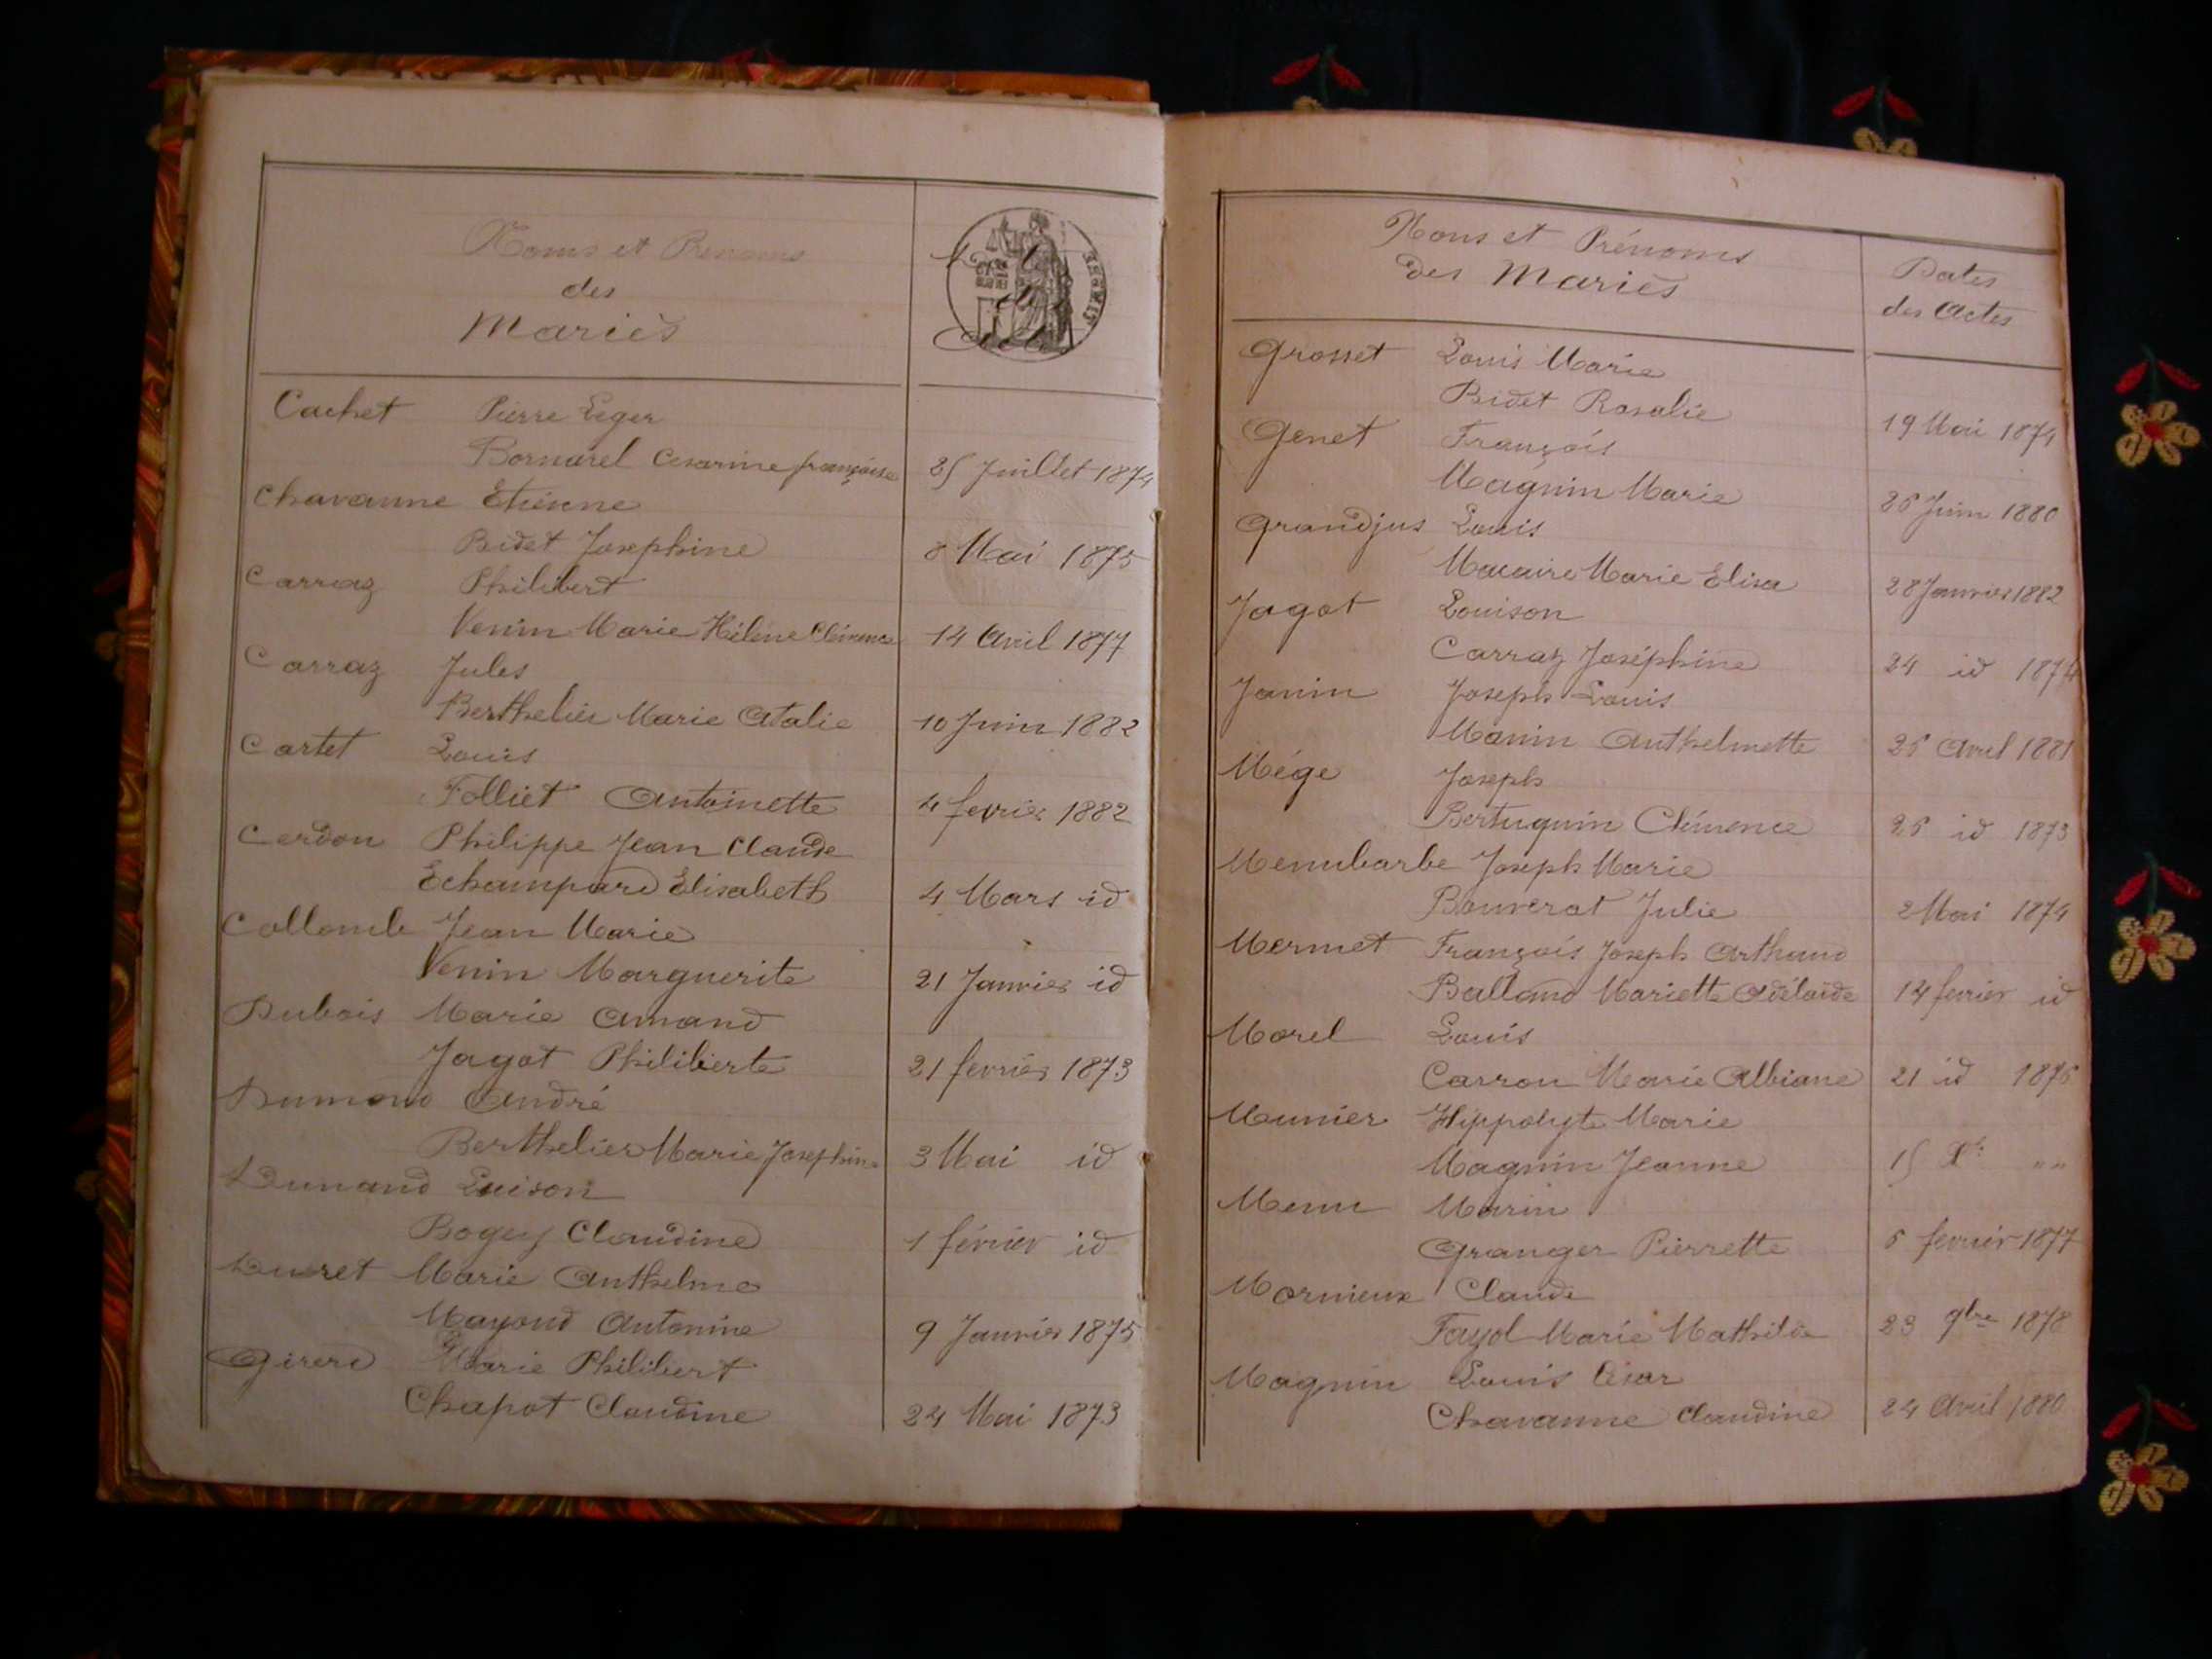 Noms et Prenoms
des
Mariés
TIMBRE
Cachet Pierre Leger
Bornarel Cesarine françoise 25 Juillet 1874
Chavanne Etienne
Bidet Josephine 8 Mai 1875
Carraz Philibert
Venin Marie Hélène Clémence 14 Avril 1877
Carraz Jules
Berthelier Marie Atalie 10 Juin 1882
Cartet Louis
Folliet Antoinette 4 fevrier 1882
Cerdon Philippe Jean Claude
Echampard Elisabeth 4 Mars id
Collomb Jean Marie
Venin Marguerite 21 Janvier id
Dubois Marie Amand
Jagot Philiberte 21 fevrier 1873
Dumond André
Berthelier Marie Josephine 3 Mai id
Dunand Louison
Bogey Claudine 1 février id
Duret Marie Anthelme
Mayond Antonine 9 Janvier 1875
Girerd Marie Philibert
Chapot Claudine 24 Mai 1873
Noms et Prénoms
des Mariés
Dates
des Actes
Grosset Louis Marie
Bidet Rosalie 19 Mai 1874
Genet François
Magnin Marie 26 Juin 1880
Grandjus Louis
Macaire Marie Elisa 28 Janvier 1882
Jagot Louison
Carraz Joséphine 24 id 1874
Janin Joseph Louis
Manin Anthelmette 26 Avril 1881
Mége Joseph
Bertuquin Clémence 26 id 1873
Menubarbe Joseph Marie
Bouverat Julie 2 Mai 1874
Mermet François Joseph Arthaud
Balland Mariette Adélaïde 14 fevrier id
Morel Louis
Carron Marie Albiane 21 id 1876
Munier Hippolyte Marie
Magnin Jeanne 15 Xbre " "
Menu Marin
Granger Pierrette 6 fevrier 1877
Mornieux Claude
Fayol Marie Mathilde 23 9bre 1878
Magnin Louis César
Chavanne Claudine 24 Avril 1880